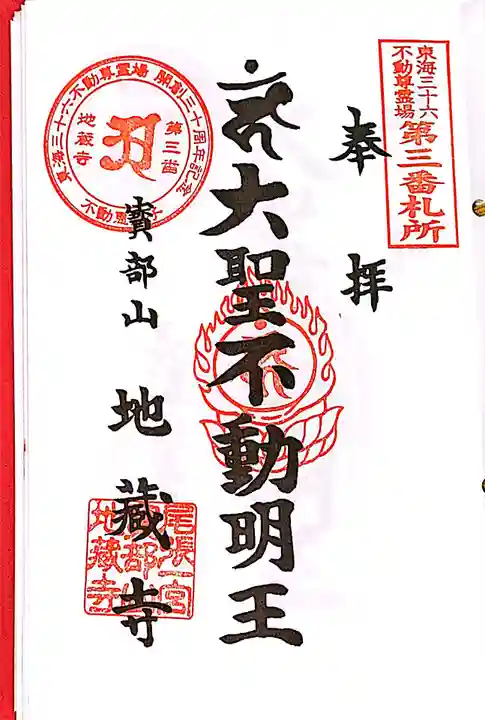 東海三十六
不動尊霊場
第三番札所
奉拝
大聖不動明王
東海三十六不動尊霊場 開創三十周年記念
第三番
地蔵寺
寳部山
地藏寺
尾張一宮
地藏寺